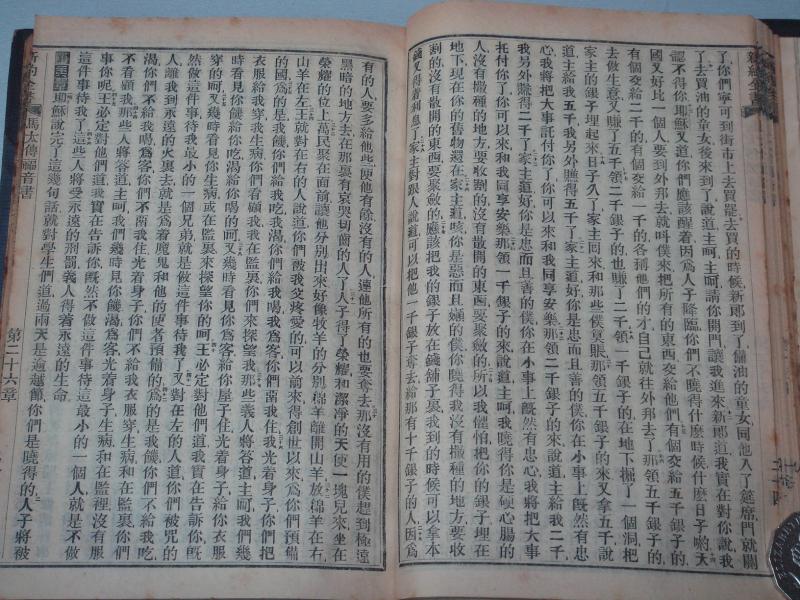 了、你們寧可到街市上去買罷、去買的時候、新郎到了、備油的童女同他入了筵席、門就關
了、去買油的童女後來到了、說道、主呵、主呵、請你開門、讓我進來、新郎道、我實在對你說、我
認不得你、耶穌又道、你們應該醒着、因爲人子降臨、你們不曉得什麼時候、什麼日子喲、天
國又好比一個人要到外邦去、就叫僕來、把所有的東西交給他們、有個交給五千銀子的、
有個交給二千的、有個交給一千的、各稱他們的才、自己就往外邦去了、那領五千銀子的、
去做生意、又賺了五千、領二千銀子的、也賺了二千、領一千銀子的、在地下掘了一個洞、把
家主的銀子埋起來、日子久了、家主囘來、和那些僕算賬、那領五千銀子的、來又拿五千、說
道、主給我五千、我另外賺得五千了、家主道、好、你是忠而且善的僕、你在小事上既然有忠
心、我將把大事託付你了、你可以來和我同享安樂、那領二千銀子的、來說道、主給我二千、
我另外賺得二千了、家主道、好、你是忠而且善的僕、你在小事上既然有忠心、我將把大事
托付你了、你可以來和我同享安樂、那領一千銀子的、來說道、主呵、我曉得你是硬心腸的
人、沒有撒種的地方、要收割的、沒有散開的東西、要聚斂的、所以我懼怕、把你的銀子埋在
地下、現在你的舊物還在、家主道、唉、你是惡而且嬾的僕、你曉得我沒有撒種的地方、要收
割的、沒有散開的東西、要聚斂的、應該把我的銀子放在錢舖子裏、我到的時候、可以拿本
錢、又得着利息了、家主對跟人說道、可以把他一千銀子奪去、給那有十千銀子的人、因爲
有的人、要多給他些、使他有餘、沒有的人、連他所有的也要奪去、那沒有用的僕、趕到極遠
黑暗的地方去、在那裏有哀哭切齒的人了、人子得了榮耀、和潔淨的天使一塊兒來、坐在
榮耀的位上、萬民聚在面前、讓他分別出來、好像牧羊的分別綿羊離開山羊、放綿羊在右、
山羊在左、王就對在右的人說道、你們蒙我父疼愛的、可以前來、得創世以來、爲你們預備
的國、我餓、你們給我吃、我渴、你們給我喝、我爲客、你們留我住、我光着身子、你們把
衣服給我穿、我生病、你們看顧我、我在監裏、你們來探望我、那些義人將答道、主呵、我們幾
時看見你餓、給你吃、渴、給你喝的呵、又幾時看見你爲客、給你屋子住、光着身子、給你衣服
穿的呵、又幾時看見你生病、或在監裏、來探望你的呵、王必定對他們道、我實在告訴你、既
然做這件事、待我最小的一個兄弟、就是做這件事待我了、又對在左的人道、你們被咒的、
離了我、到永遠的火裏去、就是爲着魔鬼、和他的使者預備的、爲的是我餓、你們不給我吃、
渴、你們不給我喝、爲客、你們不留我住、光着身子、你們不給我衣服穿、生病和在監裏、你們
不看顧我、那些人將答道、主呵、我們幾時見你餓渴、爲客、光着身子、生病、和在監裡、沒有服
事你呢、王必定對他們道、我實在告訴你、既然不做這件事、待這最小的一個人、就是不做
這件事待我了、這些人將受永遠的刑罰、義人得着永遠的生命、
耶穌說完了這幾句話、就對學生們道、過兩天是逾越節、你們是曉得的、人子將被
新約全書
馬太傳福音書
第二十六章